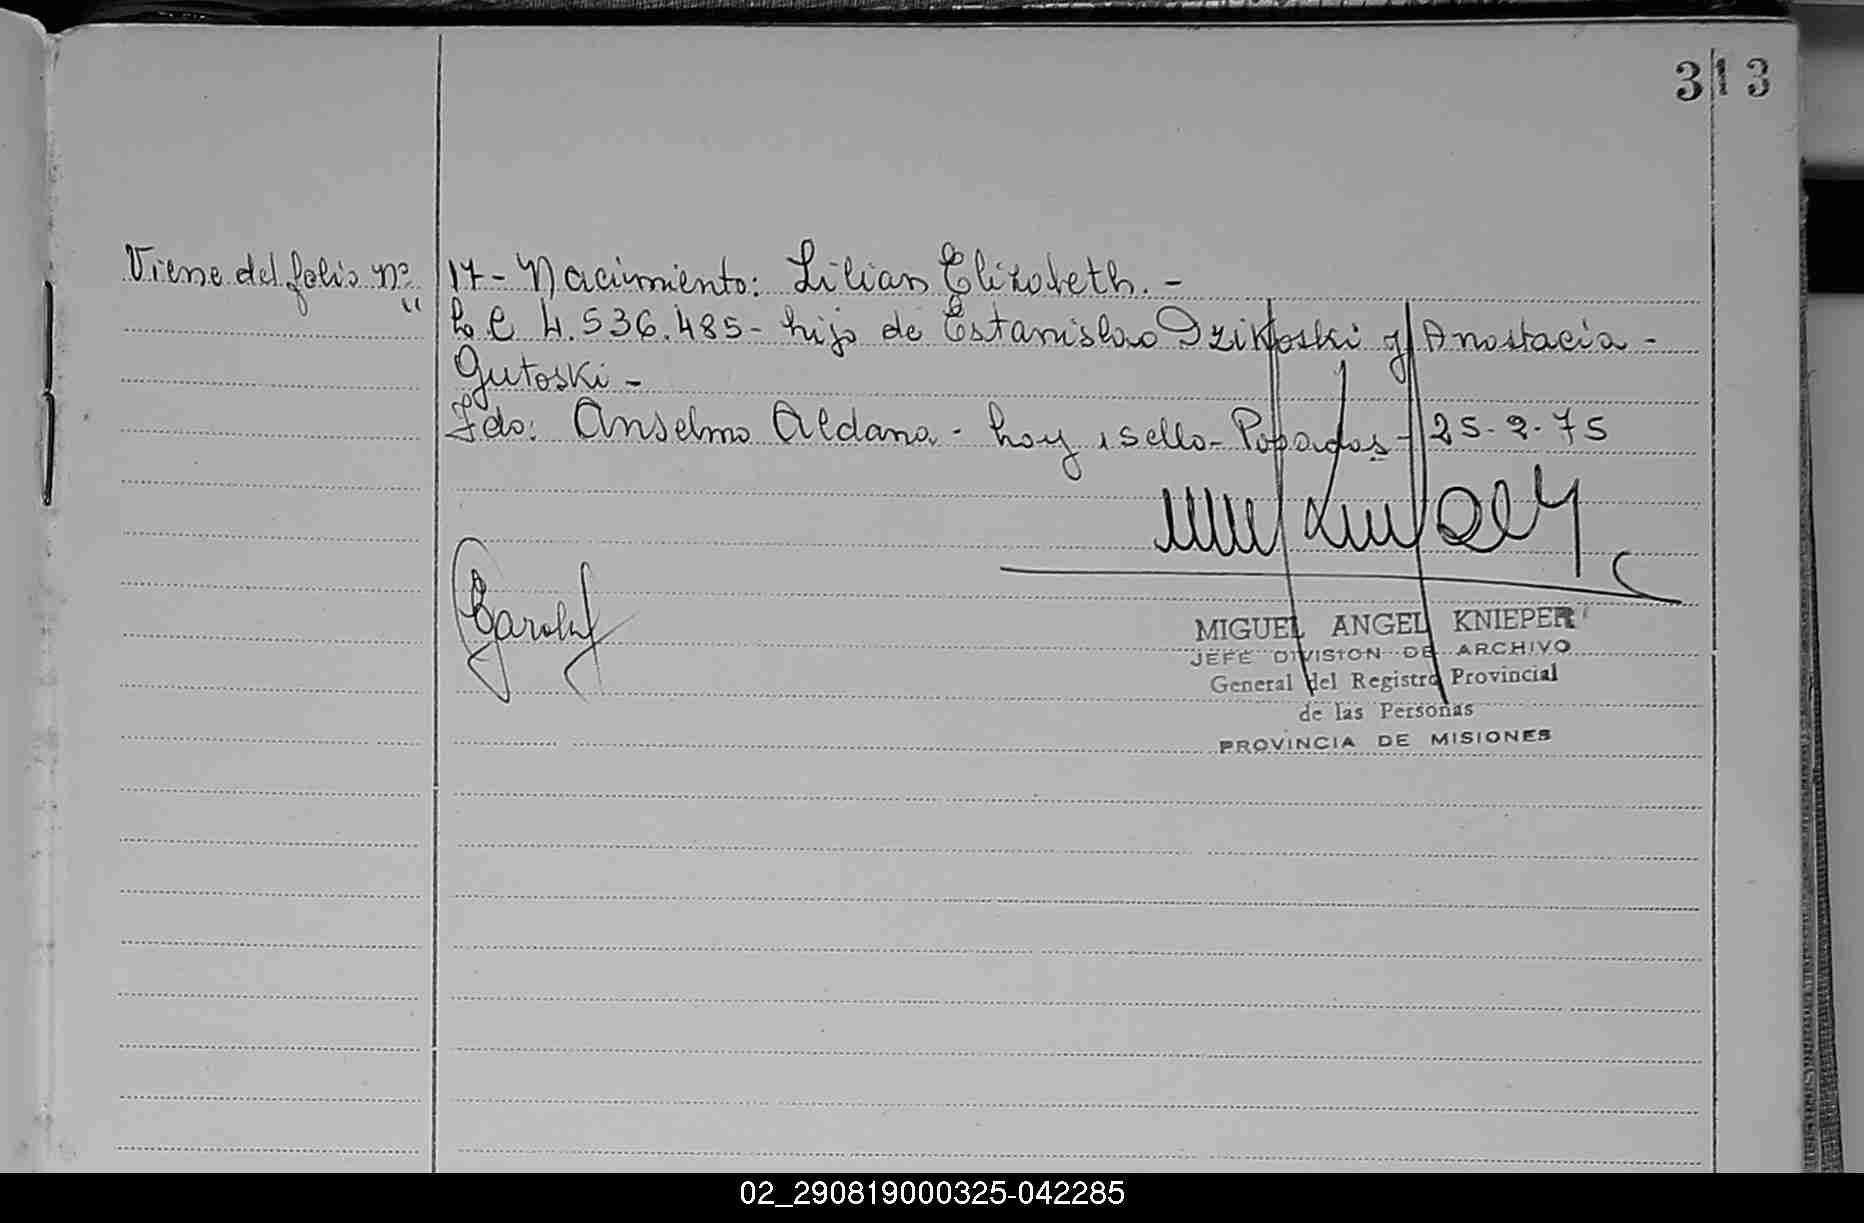 313
Viene del folio nº 17 - Nacimiento: Lilian Elizabeth. -
" L C 4.536.485 - hijo de Estanislao Dzikoski y Anastacia -
Gutoski -
Fdo: Anselmo Aldana - hay 1 sello - Posadas - 25-2-75
MIGUEL ANGEL KNIEPER
JEFE DIVISION DE ARCHIVO
General del Registro Provincial
de las Personas
PROVINCIA DE MISIONES
02_290819000325-042285